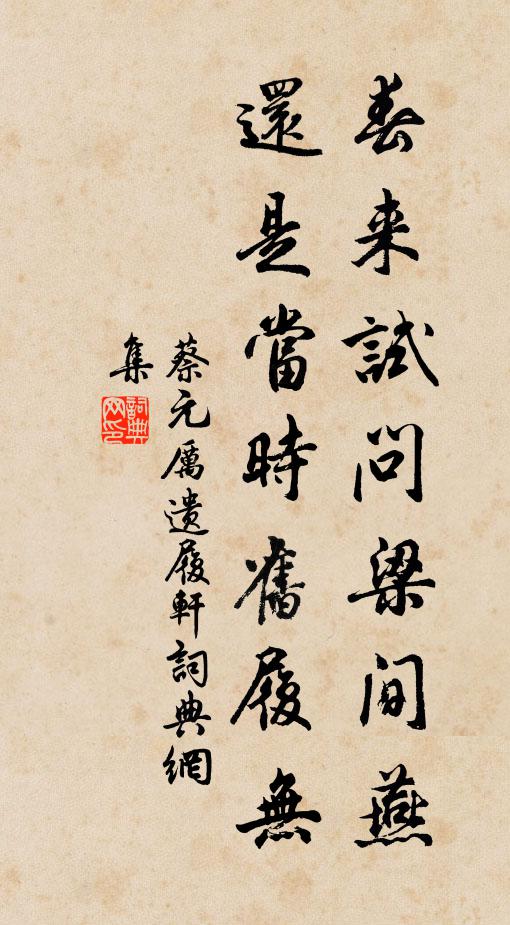 春来試問梁间燕
還是當時舊履無
蔡元厲遺履軒詞典網
集
詞典网印